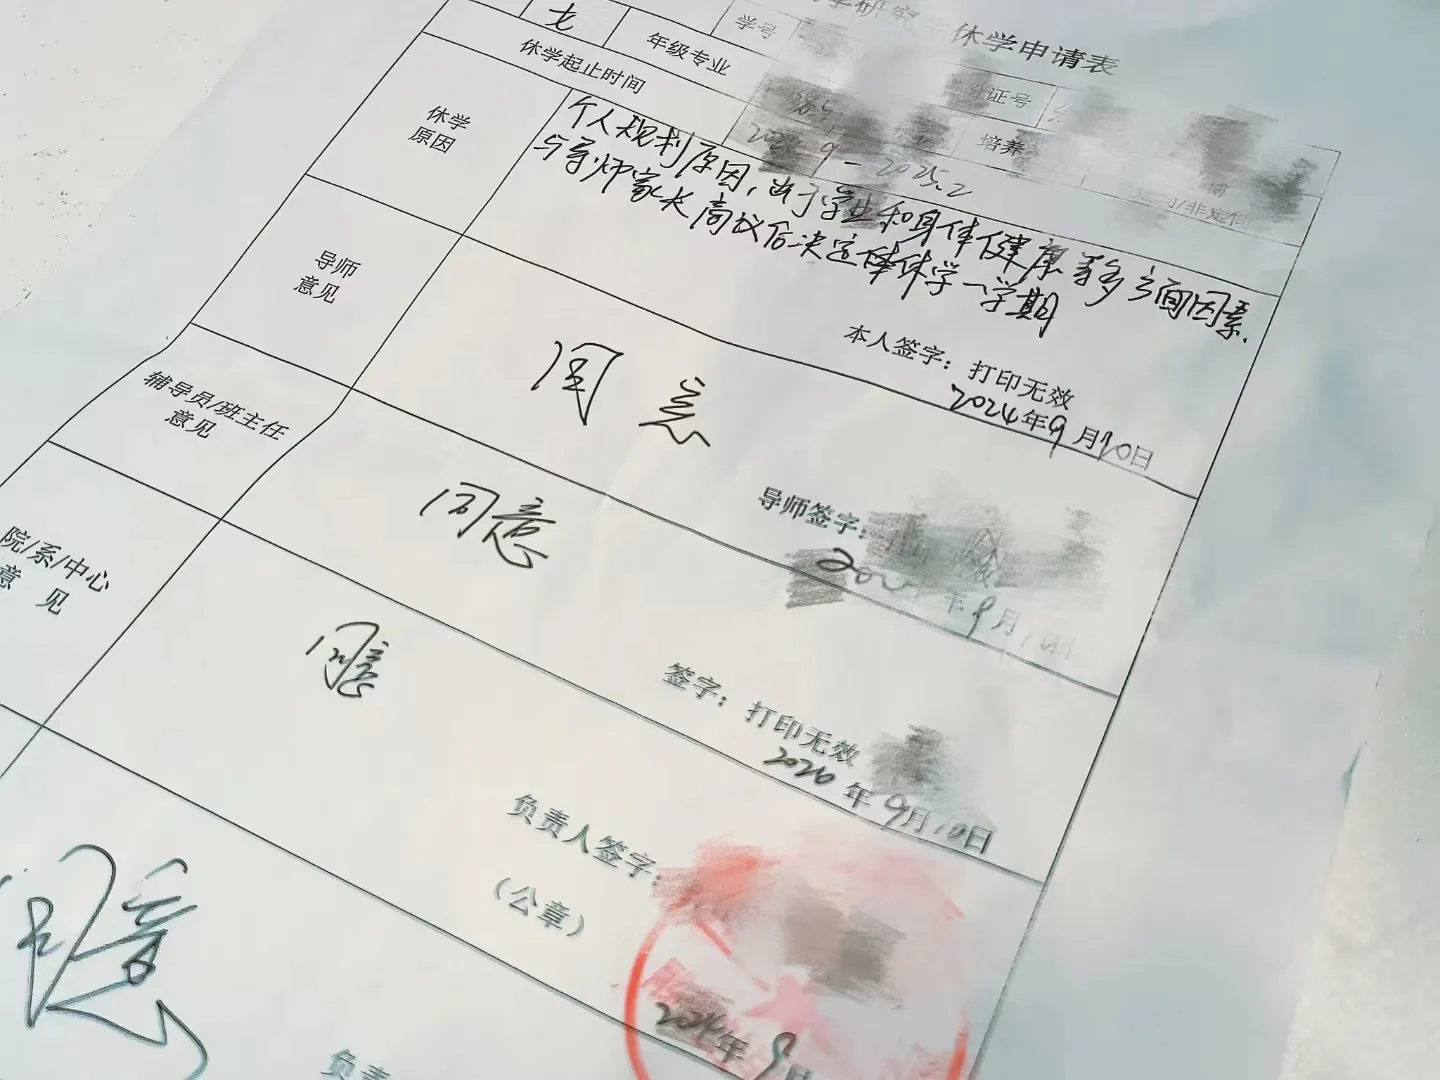 研究 休学申请表
学号
年级专业
证号
休学起止时间
培养
9-2025.2
/非定向
休学
原因
个人规划原因，出于学业和身体健康等多方面因素.
与导师家长商议后决定休学一学期
本人签字：打印无效
2024年9月10日
导师
意见
同意
导师签字：
年9月10日
辅导员/班主任
意见
同意
签字：打印无效
年9月10日
院/系/中心
意 见
同意
负责人签字：
（公章）
年9月
同意
负责